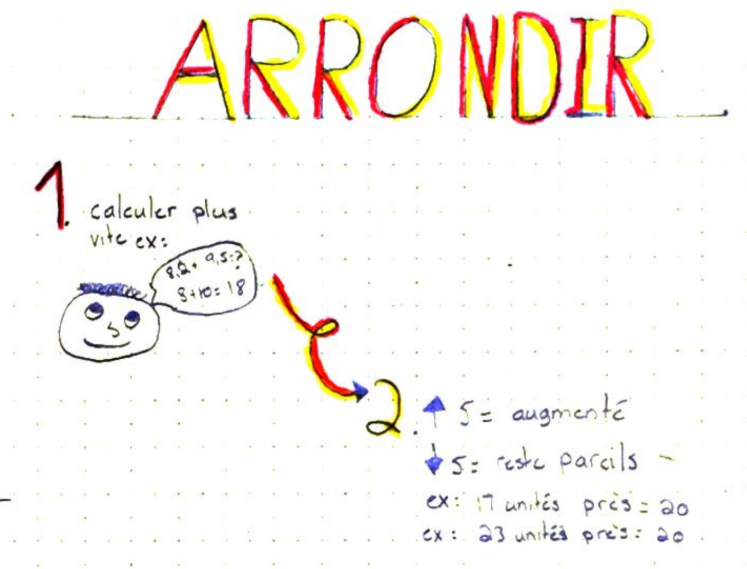 ARRONDIR
1. calculer plus
vite ex:
8,2+ 9,5=?
8+10= 18
2. ↑ 5 = augmenté
↓ 5 = reste pareils
ex: 17 unités près = 20
ex: 23 unités près = 20